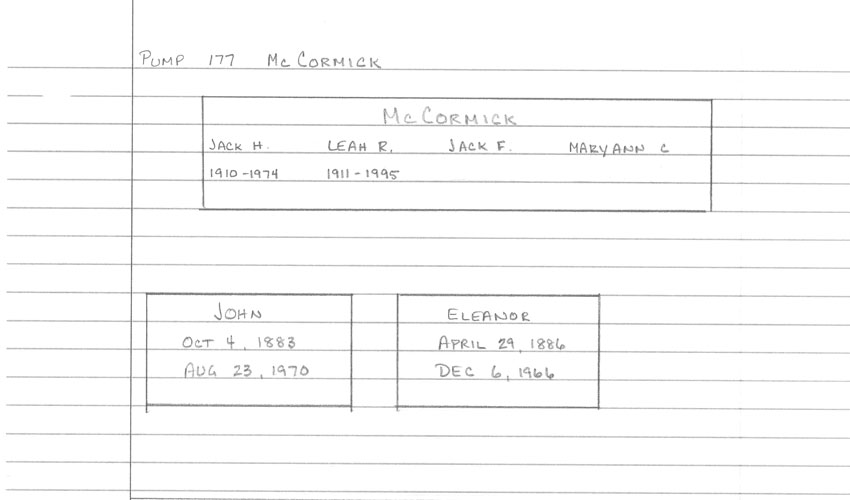 PUMP 177 McCORMICK
McCORMICK
JACK H. LEAH R. JACK F. MARYANN C
1910-1974 1911-1995
JOHN
OCT 4, 1883
AUG 23, 1970
ELEANOR
APRIL 29, 1886
DEC 6, 1966